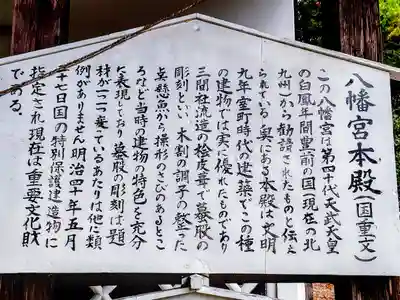 八幡宮本殿(国重文)
この八幡宮は第四十代天武天皇
の白鳳年間豊前の国(現在の北
九州)から勧請されたものと伝え
られている。奥にある本殿は文明
九年室町時代の建築でこの種
の建物では実に優れたものであり
三間社流造の桧皮葺で蟇股の
彫刻といい、木割の調子の整った
点懸魚から操形のさびのあるとこ
ろなど当時の建物の特色を充分
に表現しており蟇股の彫刻は題
材が一つ一つ変ているあたりは他に類
例がありません明治四十年五月
二十七日国の特別保護建造物に
指定され現在は重要文化財
である。